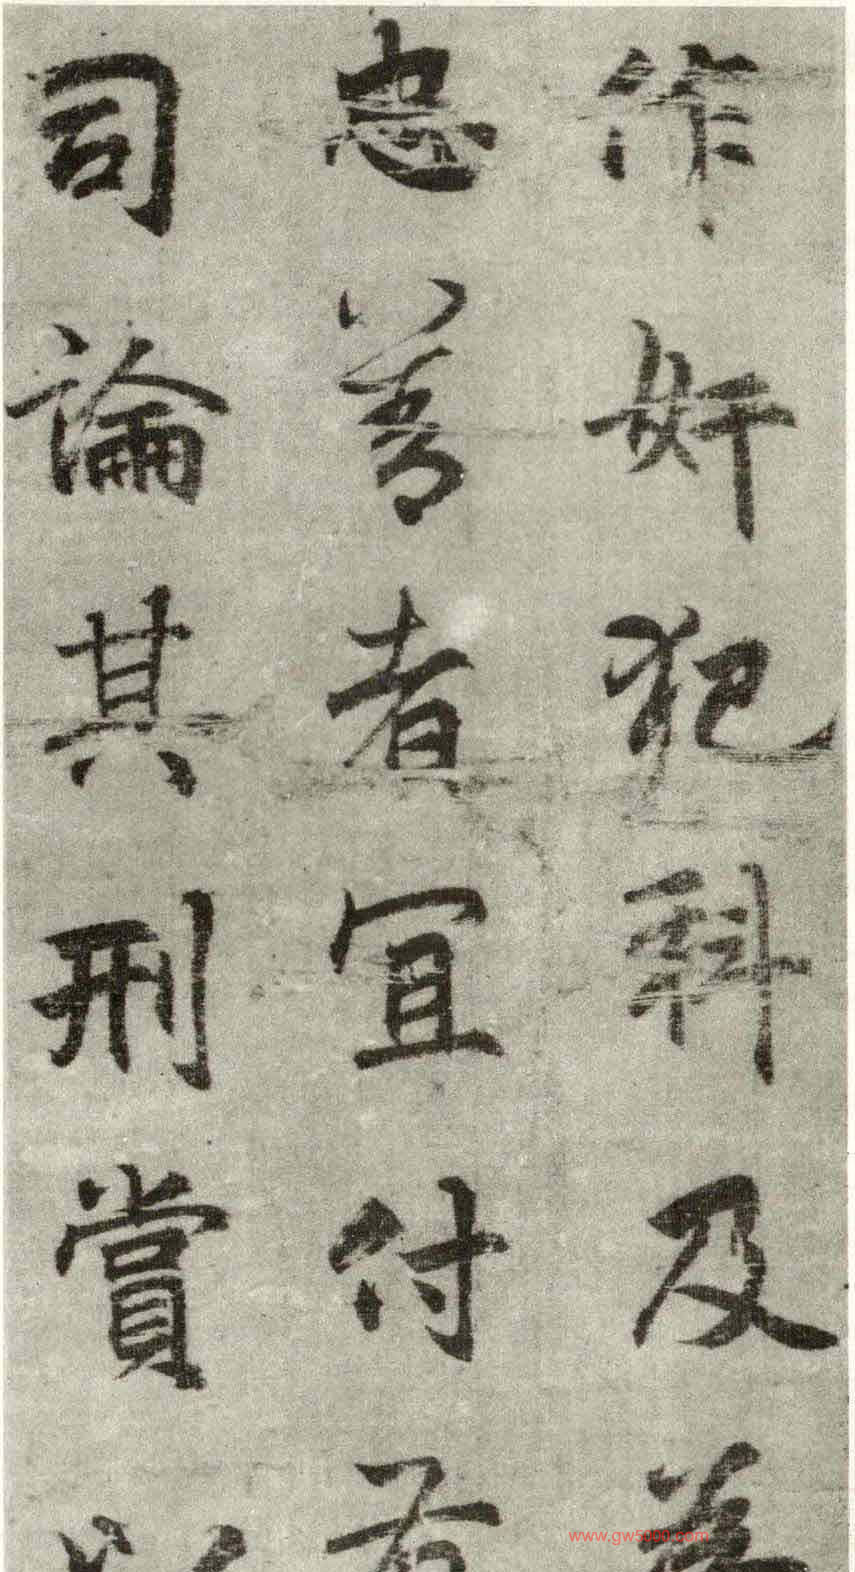 作奸犯科及為
忠善者宜付有
司論其刑賞以
www.gw5000.com